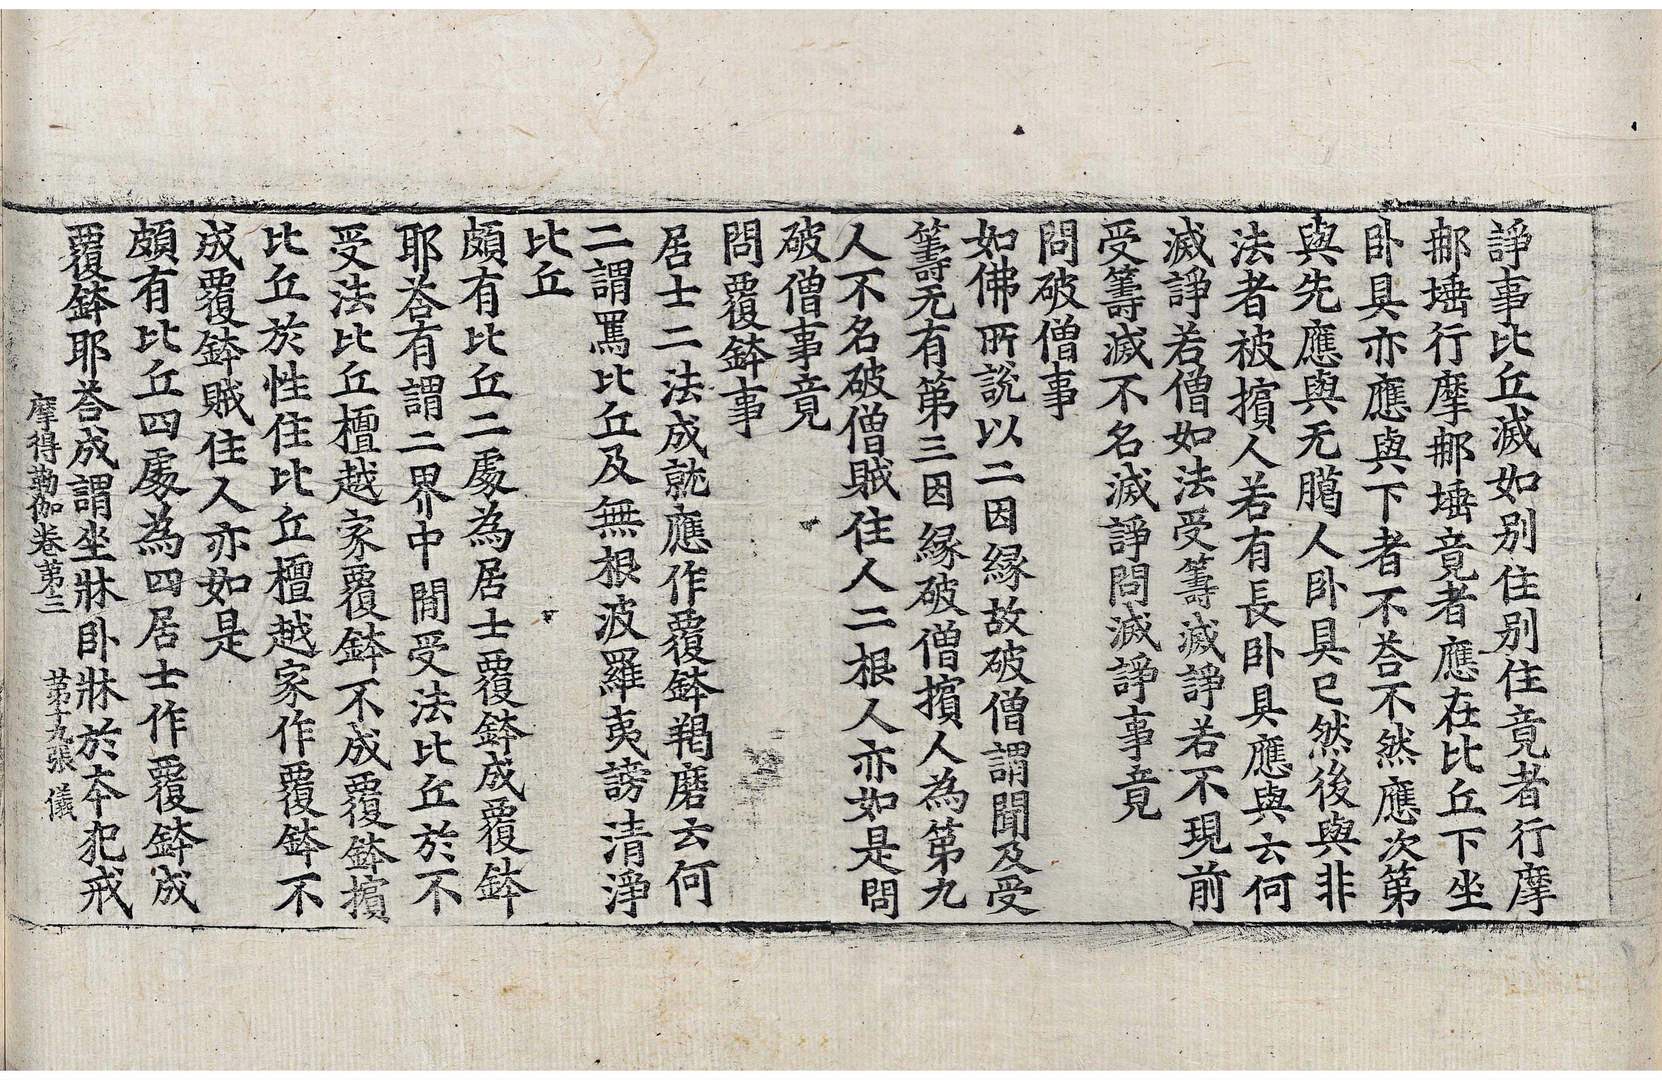 諍事比丘滅如别住别住竟者行摩
郍埵行摩郍埵竟者應在比丘下坐
卧具亦應與下者不荅不然應次第
與先應與无臈人卧具已然後與非
法者被擯人若有長卧具應與云何
滅諍若僧如法受籌滅諍若不現前
受籌滅不名滅諍問滅諍事竟
問破僧事
如佛所說以二因縁故破僧謂聞及受
籌无有第三因縁破僧擯人為第九
人不名破僧賊住人二根人亦如是問
破僧事竟
問覆鉢事
居士二法成就應作覆鉢羯磨云何
二謂罵比丘及無根波羅夷謗清淨
比丘
頗有比丘二處為居士覆鉢成覆鉢
耶荅有謂二界中閒受法比丘於不
受法比丘檀越家覆鉢不成覆鉢擯
比丘於性住比丘檀越家作覆鉢不
成覆鉢賊住人亦如是
頗有比丘四處為四居士作覆鉢成
覆鉢耶荅成謂坐牀卧牀於本犯戒
摩得勒伽卷第三 第十九張 儀